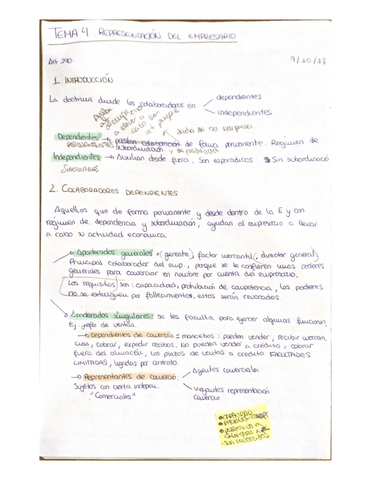 TEMA 4 REPRESENTACIÓN DEL EMPRESARIO
Art 290
9/10/18
1. INTRODUCCIÓN
La doctrina divide los colaboradores en → dependientes
→ independientes
Dependientes → prestan colaboración de forma permanente. Regimen de
PERMANENTES subordinación
Independientes → Auxilian desde fuera. Son esporádicos Sin subordinación
SINGULARES
2. COLABORADORES DEPENDIENTES
Aquellos que de forma permanente y desde dentro de la E y con
regimen de dependencia y subordinación, ayudan al empresario a llevar
a cabo su actividad economica.
→ Apoderados generales (gerente) factor mercantil (director general)
Principal colaborador del emp., porque se le confieren unos poderes
generales para comerciar en nombre y por cuenta del empresario.
Los requisitos son: capacidad, prohibicion de competencia, los poderes
no se extinguen por fallecimientos, estos serán revocados.
→ Apoderados singulares: se les faculta para ejercer algunas funciones
Ej: jefe de ventas
→ Dependientes de comercio = mancebos: pueden vender, recibir mercan
cias, cobrar, expedir recibos. No pueden vender a crédito, cobrar
fuera del almacén, los plazos de ventas a crédito FACULTADES
LIMITADAS, ligados por contrato.
→ Representantes de comercio: → Agentes comerciales
Sujetos con cierta indepen.
"Comerciales"
→ Viajantes representación
comercio